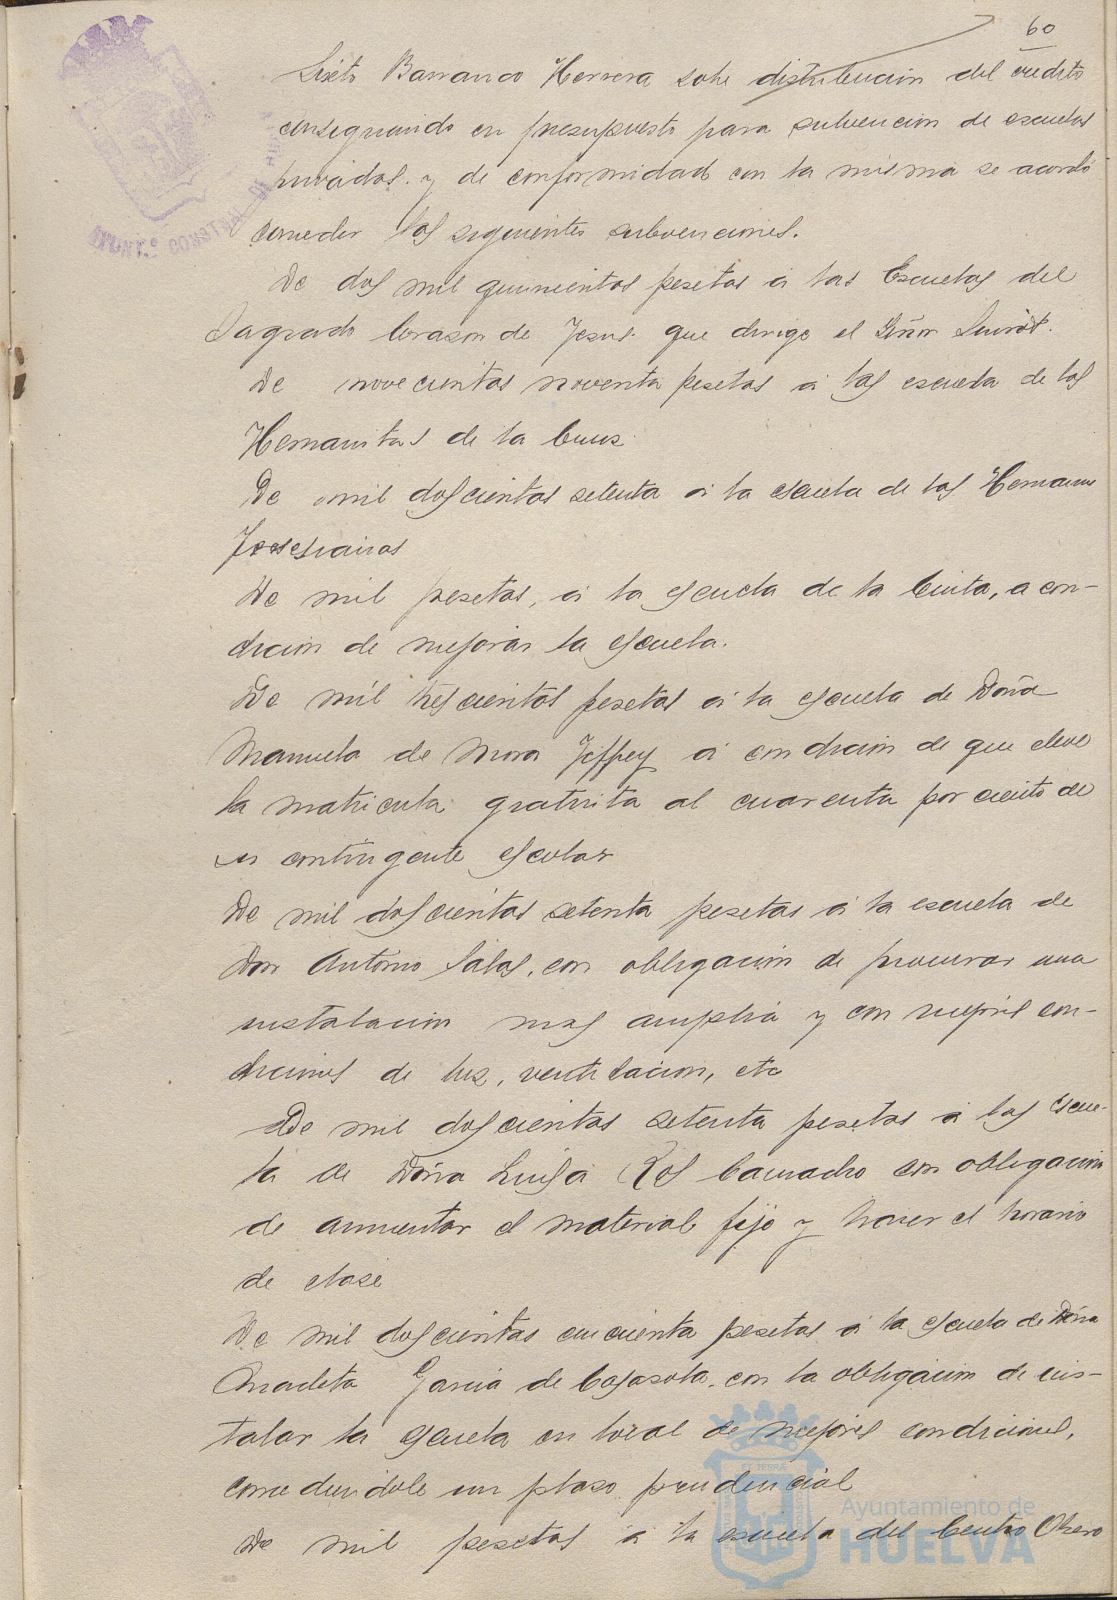 60
Sixto Barranco Herrera sobre distribución del credito
consignando en presupuesto para subvencion de escuelas
privadas. y de conformidad con la misma se acordó
conceder las siguientes subvenciones.
De dos mil quinientas pesetas á las Escuelas del
Sagrado Corazon de Jesus. que dirige el Señor Siurot.
De novecientas noventa pesetas á las escuela de las
Hermanitas de la Cruz.
De mil doscientas setenta á la escuela de las Hermanas
De mil pesetas, á la escuela de la Cinta, a con-
dicion de mejorar la escuela.
De mil trescientas pesetas á la escuela de Doña
Manuela de Mora Jeffrey á condicion de que eleve
la matricula gratuita al cuarenta por ciento de
su contingente escolar
De mil doscientas setenta pesetas á la escuela de
Don Antonio Salas, con obligacion de procurar una
instalacion mas amplia y con mejores con-
diciones de luz, ventilacion, etc
De mil doscientas setenta pesetas á las escue-
la de Doña Luisa Ros Camacho con obligacion
de aumentar el material fijo y hacer el horario
de clase
De mil doscientas cincuenta pesetas á la escuela de Doña
Anacleta Garcia de Casasola, con la obligacion de ins-
talar la escuela en local de mejores condiciones,
concediendole un plazo prudencial
De mil pesetas á la escuela del Centro Obrero
AYUNT.º CONSTNAL DE HUELVA
Ayuntamiento de
HUELVA